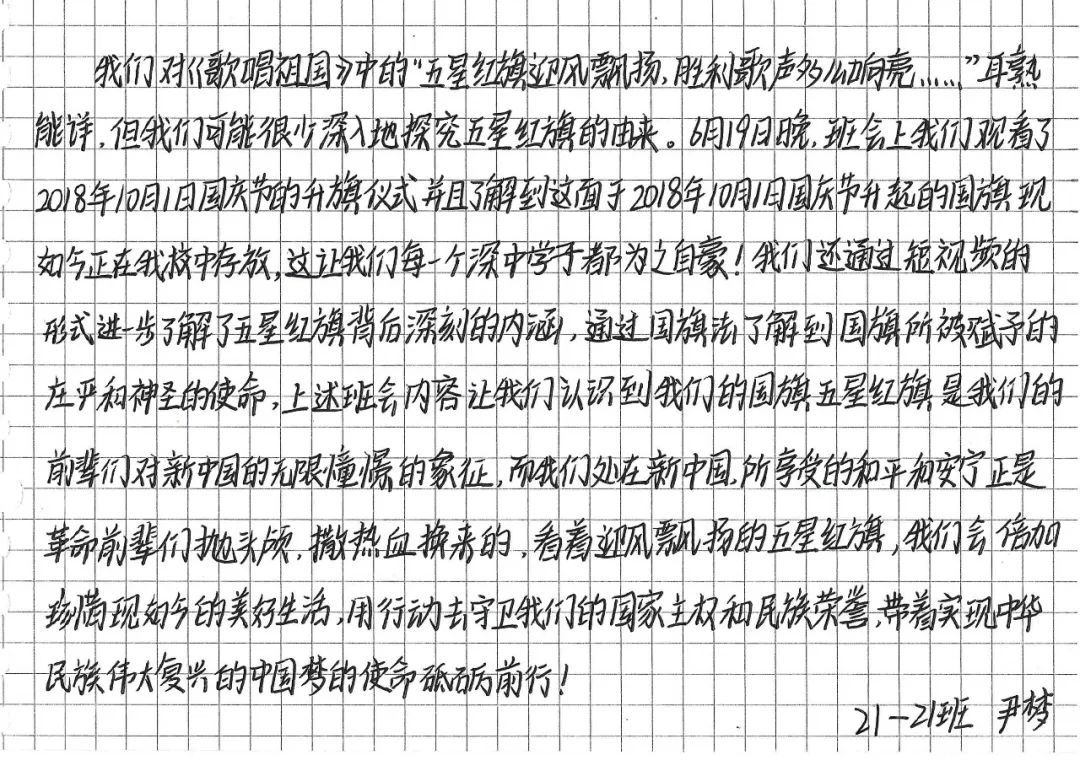 我们对《歌唱祖国》中的“五星红旗迎风飘扬，胜利歌声多么响亮……”耳熟
能详，但我们可能很少深入地探究五星红旗的由来。6月19日晚，班会上我们观看了
2018年10月1日国庆节的升旗仪式并且了解到这面于2018年10月1日国庆节升起的国旗现
如今正在我校中存放，这让我们每一个深中学子都为之自豪！我们还通过短视频的
形式进一步了解了五星红旗背后深刻的内涵，通过国旗法了解到国旗所被赋予的
庄严和神圣的使命，上述班会内容让我们认识到我们的国旗五星红旗是我们的
前辈们对新中国的无限憧憬的象征，而我们处在新中国，所享受的和平和安宁正是
革命前辈们抛头颅，撒热血换来的，看着迎风飘扬的五星红旗，我们会倍加
珍惜现如今的美好生活，用行动去守卫我们的国家主权和民族荣誉，带着实现中华
民族伟大复兴的中国梦的使命砥砺前行！
21-21班 尹梦